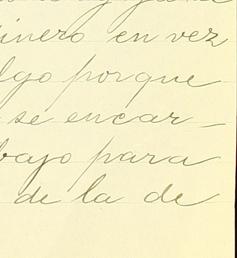 dinero en vez
lgo porque
se encar-
bajo para
de la de